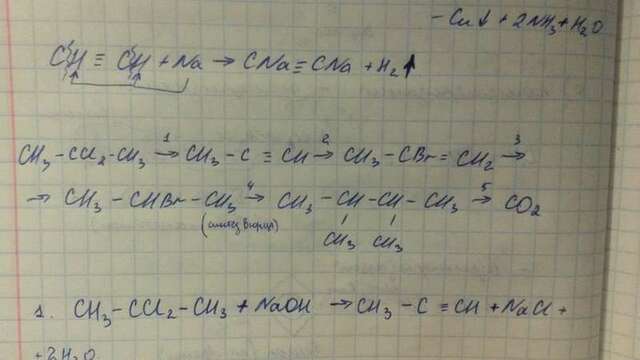 - Cu↓ + 2NH₃ + H₂O
CH ≡ CH + Na → CNa ≡ CNa + H₂↑
CH₃ - CCl₂ - CH₃ →¹ CH₃ - C ≡ CH →² CH₃ - CBr = CH₂ →³
→ CH₃ - CHBr - CH₃ →⁴ CH₃ - CH - CH - CH₃ →⁵ CO₂
(синтез Вюрца) CH₃ CH₃
1. CH₃ - CCl₂ - CH₃ + NaOH → CH₃ - C ≡ CH + NaCl +
+ 2H₂O